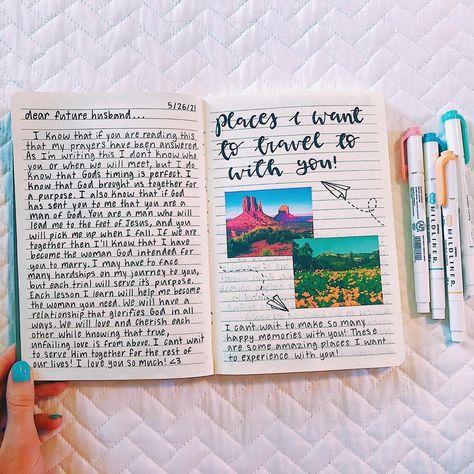 5/26/21
dear future husband...
I know that if you are reading this
that my prayers have been answered.
As I'm writing this I don't know who
you or when we will meet, but I do
know that Gods timing is perfect. I
know that God brought us together for
a purpose. I also know that if God
has sent you to me that you are a
man of God. You are a man who will
lead me to the feet of Jesus, and you
will pick me up when I fall. If we are
together then I'll know that I have
become the woman God intended for
you to marry. I may have to face
many hardships on my journey to you,
but each trial will serve it's purpose.
Each lesson I learn will help me become
the woman you need. We will have a
relationship that glorifies God in all
ways. We will love and cherish each
other while knowing that true,
unfailing love is from above. I cant wait
to serve Him together for the rest of
our lives! I love you so much! <3
places i want
to travel to
with you!
I can't wait to make so many
happy memories with you! These
are some amazing places I want
to experience with you!
MILDLINER
MILDLINER
MILDLINER